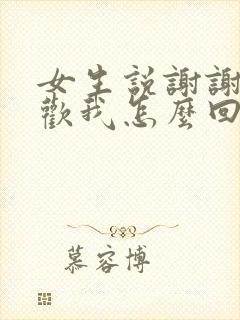 女生説謝謝
歡我怎麼回
慕容博